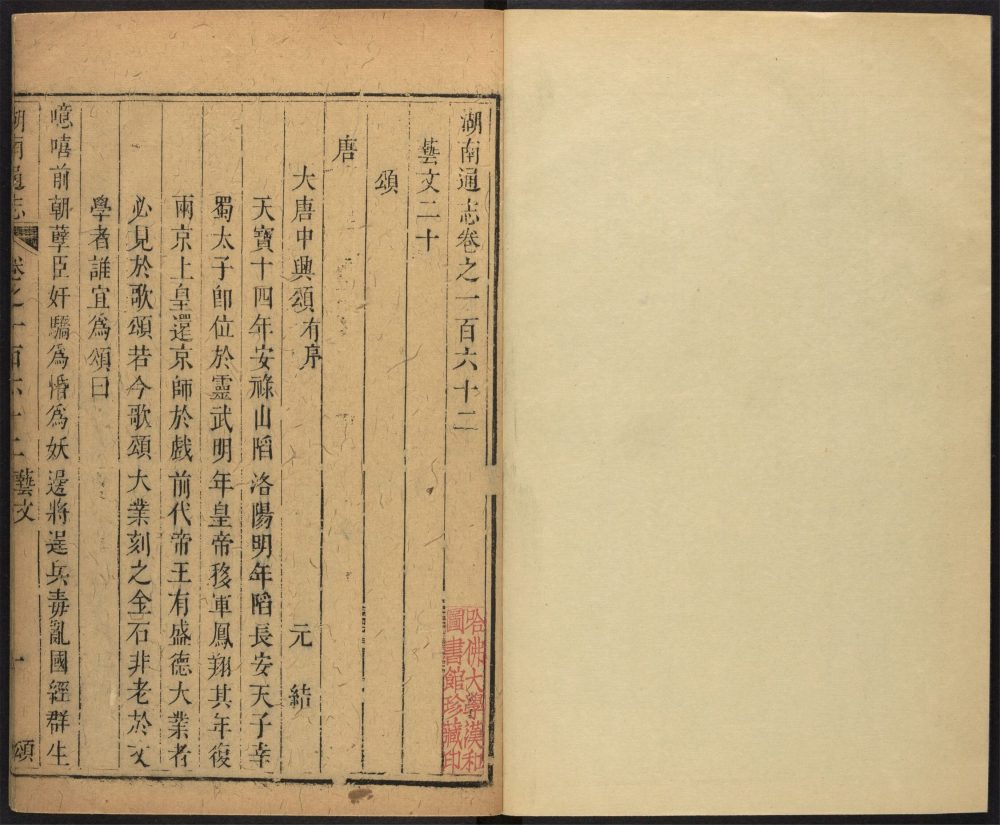 湖南通志卷之一百六十二
藝文二十
頌
唐
大唐中興頌有序 元結
天寶十四年安祿山陷洛陽明年陷長安天子幸
蜀太子卽位於靈武明年皇帝移軍鳳翔其年復
兩京上皇還京師於戲前代帝王有盛德大業者
必見於歌頌若今歌頌大業刻之金石非老於文
學者誰宜爲頌曰
噫嘻前朝孽臣奸驕爲惛爲妖邊將逞兵毒亂國經群生
湖南通志 卷之一百六十二 藝文 一 頌
哈佛大學漢和
圖書館珍藏印